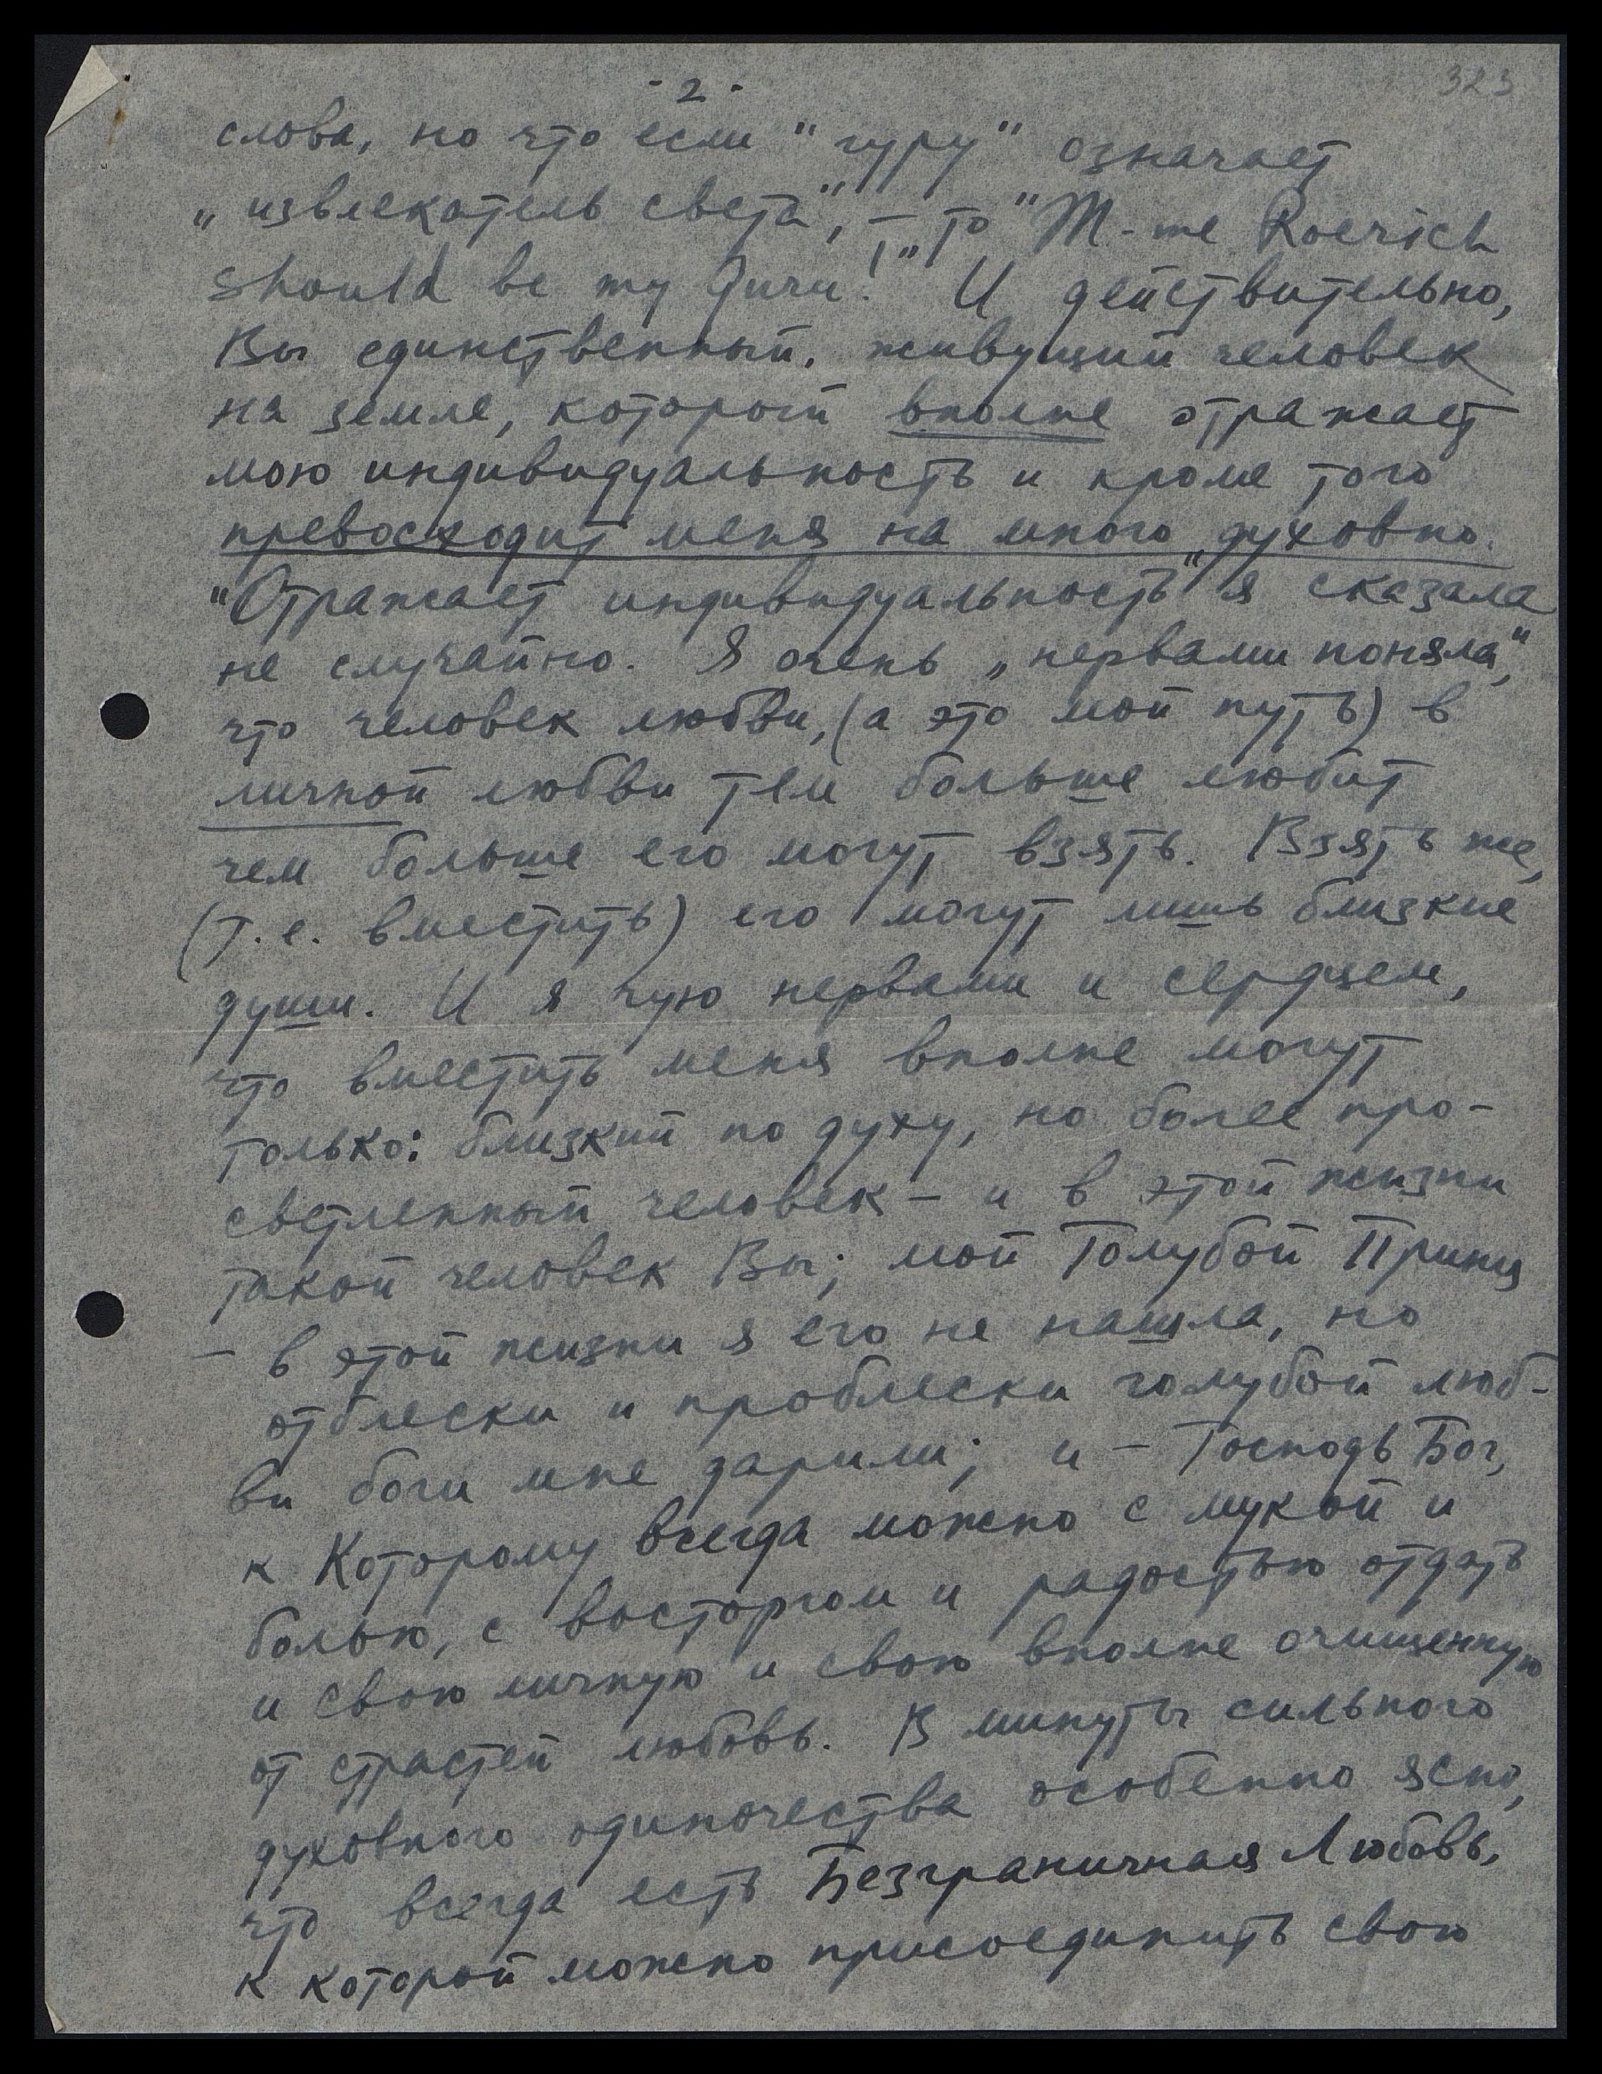 323
- 2 -
слова, но что если "гуру" означает
„извлекатель света", – то "M-me Roerich
should be my Guru!" И действительно,
Вы единственный, живущий человек
на земле, который вполне отражает
мою индивидуальность и кроме того
превосходит меня на много духовно.
"Отражает индивидуальность" я сказала
не случайно. Я очень „нервами поняла",
что человек любви, (а это мой путь) в
личной любви тем больше любит
чем больше его могут взять. Взять же,
(т.е. вместить) его могут лишь близкие
души. И я чую нервами и сердцем,
что вместить меня вполне могут
только: близкий по духу, но более про-
светленный человек – и в этой жизни
такой человек Вы; мой Голубой Принц
– в этой жизни я его не нашла, но
отблески и проблески голубой люб-
ви боги мне дарили; и – Господь Бог,
к Которому всегда можно с мукой и
болью, с восторгом и радостью отдать
и свою личную и свою вполне очищенную
от страстей любовь. В минуты сильного
духовного одиночества особенно ясно,
что всегда есть Безграничная Любовь,
к которой можно присоединить свою